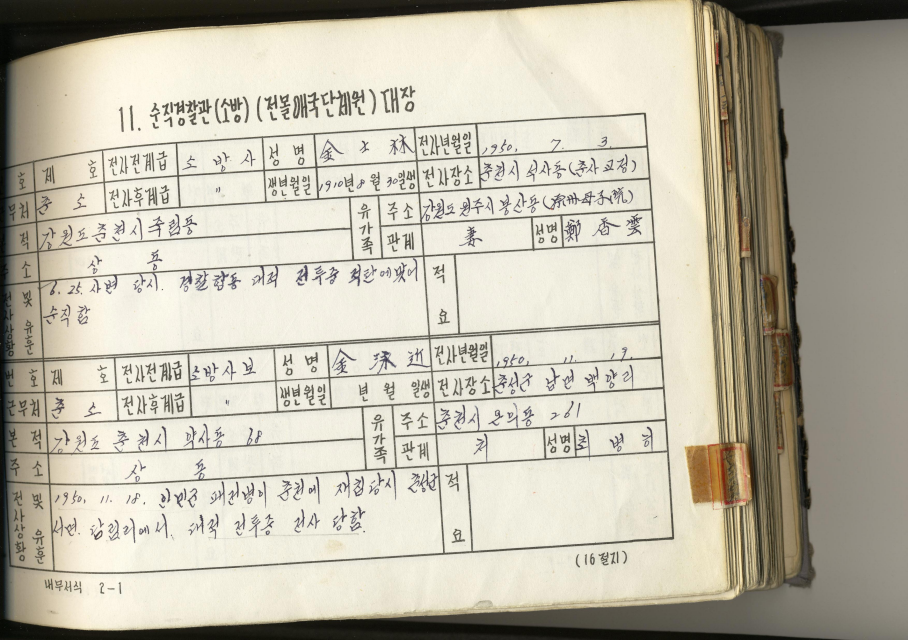 11. 순직경찰관(소방) (전몰애국단체원) 대장
호 제 호 전사전계급 소방사 성명 金 林 전사년월일 1950. 7. 3
무처 춘소 전사후계급 〃 생년월일 1910년 8월 30일생 전사장소 춘천시 석사동
적 강원도 춘천시 죽림동 유가족 주소 강원도 원주시 봉산동
소 상동 관계 妻 성명 鄭香雲
및 유훈 6.25. 사변 당시. 경찰합동 대적 전투중 적탄에 맞어 적요
순직함
번호 제 호 전사전계급 소방사보 성명 金 近 전사년월일 1950. 11. 19.
근무처 춘소 전사후계급 〃 생년월일 년 월 일생 전사장소 춘성군 남면 백양리
본적 강원도 춘천시 약사동 68 유가족 주소 춘천시 261
주소 상동 관계 처 성명 최병히
전사상황 및 유훈 1950. 11. 18. 인민군 패잔병이 춘천에 재침당시 춘성군 적요
서면. 에서. 대적 전투중 전사 당함.
(16절지)
내무서식 2-1